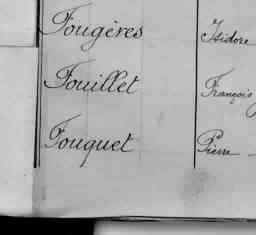 Fougères Isidore
Fouillet François
Fouquet Pierre